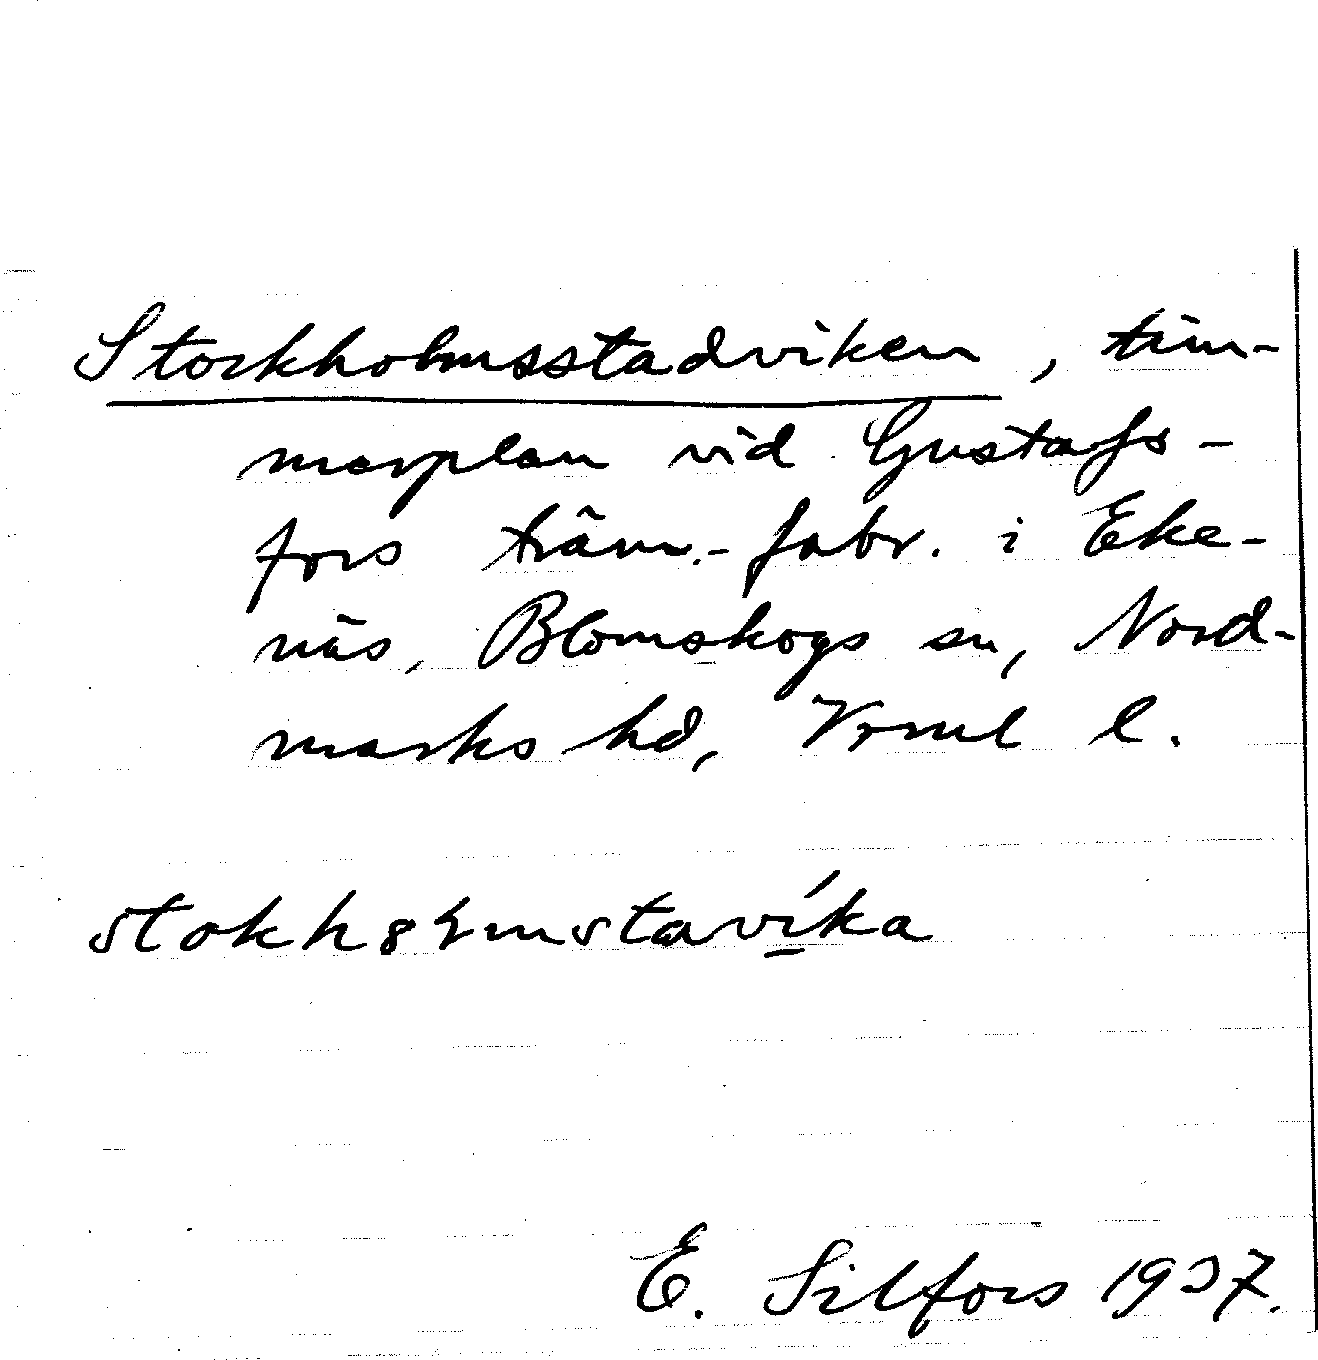 Stockholmsstadviken, tim-
merplan vid Gustafs-
fors träm.-fabr. i Eke-
näs, Blomskogs sn, Nord-
marks hd, Vrml l.
E. Silfors 1937.